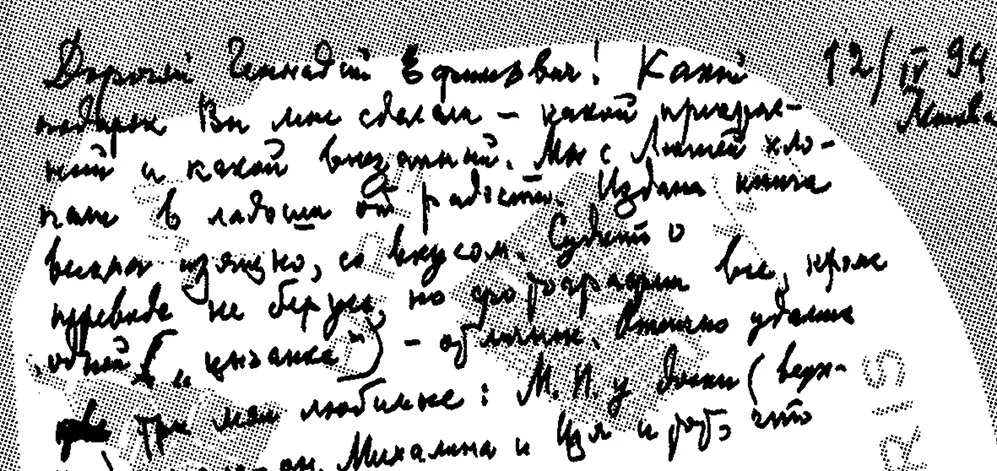 Дорогой Геннадий Ефимович! Какой 12/IV 94
подарок Вы мне сделали – какой прекрас- Москва
ный и какой внезапный. Мы с Люшей хло-
пали в ладоши от радости. Издана книга
весьма изящно, со вкусом. Судить о
переводе не берусь, но фотографии все, кроме
одной („цыганка") – отличные. Отлично удались
три мои любимые: М. И. у доски (верх-
Михалина и Юл и
что
RIS